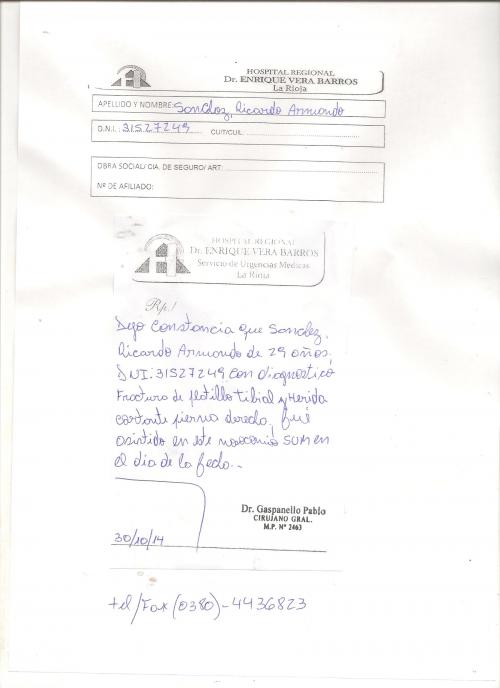 HOSPITAL REGIONAL
Dr. ENRIQUE VERA BARROS
La Rioja
APELLIDO Y NOMBRE: Sanchez, Ricardo Armando
D.N.I.: 31527249 CUIT/CUIL:
OBRA SOCIAL/ CIA. DE SEGURO/ ART:
Nº DE AFILIADO:
HOSPITAL REGIONAL
Dr. ENRIQUE VERA BARROS
Servicio de Urgencias Medicas
La Rioja
Rp./
Dejo Constancia que Sanchez,
Ricardo Armando de 29 años,
DNI: 31527249 con diagnostico
Fractura de platillo tibial y Herida
cortante pierna derecha, fué
asistido en este nosocomio SUM en
el dia de la fecha..
Dr. Gaspanello Pablo
CIRUJANO GRAL.
M.P. Nº 2463
30/10/14
tel/Fax (0380)-4436823